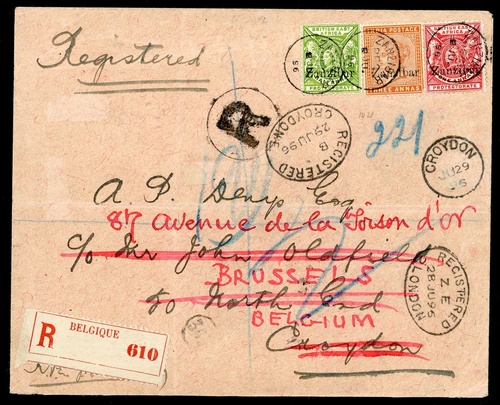 Registered
BRITISH EAST AFRICA
Zanzibar
PROTECTORATE
INDIA POSTAGE
Zanzibar
THREE ANNAS
BRITISH EAST AFRICA
Zanzibar
PROTECTORATE
R
REGISTERED
8
29 JU 96
CROYDON
221
CROYDON
JU 29
96
A. P. Denys Esq
87 avenue de la Toison d'or
c/o Mr John Oldfield
BRUSSELS
50 North End
BELGIUM
Croydon
REGISTERED
Z E
28 JU 96
LONDON
BELGIQUE
R 610